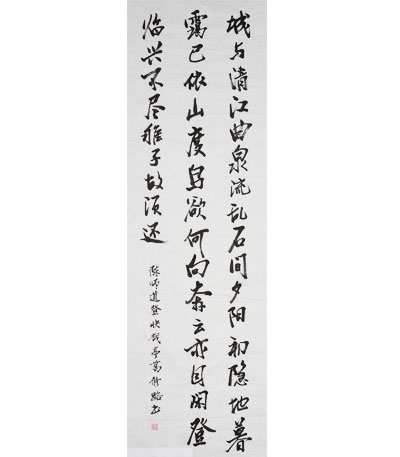 城与清江曲泉流乱石间夕阳初隐地暮
霭已依山度鸟欲何向奔云亦自闲登
临兴不尽稚子故须还
陈师道登快哉亭